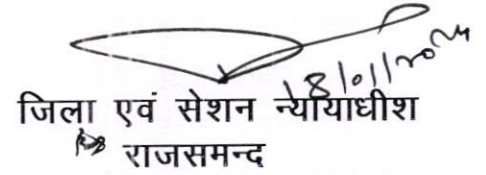 18/01/2024
जिला एवं सेशन न्यायाधीश
राजसमन्द